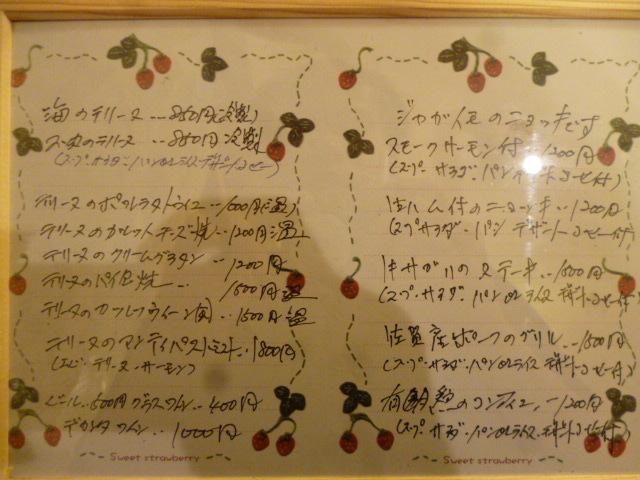 海のテリーヌ ... 850円(冷製)
テリーヌ ... 850円 冷製
(スープ サラダ パン or ライス デザート コーヒー)
テリーヌの ラタトゥイユ .. 1000円(温)
テリーヌの チーズ焼 .. 1200円 温
テリーヌのクリームグラタン .. 1200円
テリーヌのパイ包焼 .. 1500円 温
テリーヌの .. 1500円 温
テリーヌのアンティパストミスト . 1800円
(エビ・テリーヌ・サーモン)
ビール .. 500円 グラスワイン .. 400円
デカンタワイン .. 1000円
Sweet strawberry
ジャガイモのニョッキです
スモークサーモン付 .. 1200円
(スープ サラダ パン デザート コーヒー付)
生ハム付のニョッキ .. 1200円
(スープ サラダ パン デザート コーヒー付)
ステーキ .. 1500円
(スープ サラダ パン or ライス デザート コーヒー付)
佐賀産ポークのグリル .. 1500円
(スープ サラダ パン or ライス デザート コーヒー付)
有明 の .. 1200円
(スープ サラダ パン or ライス デザート コーヒー付)
Sweet strawberry